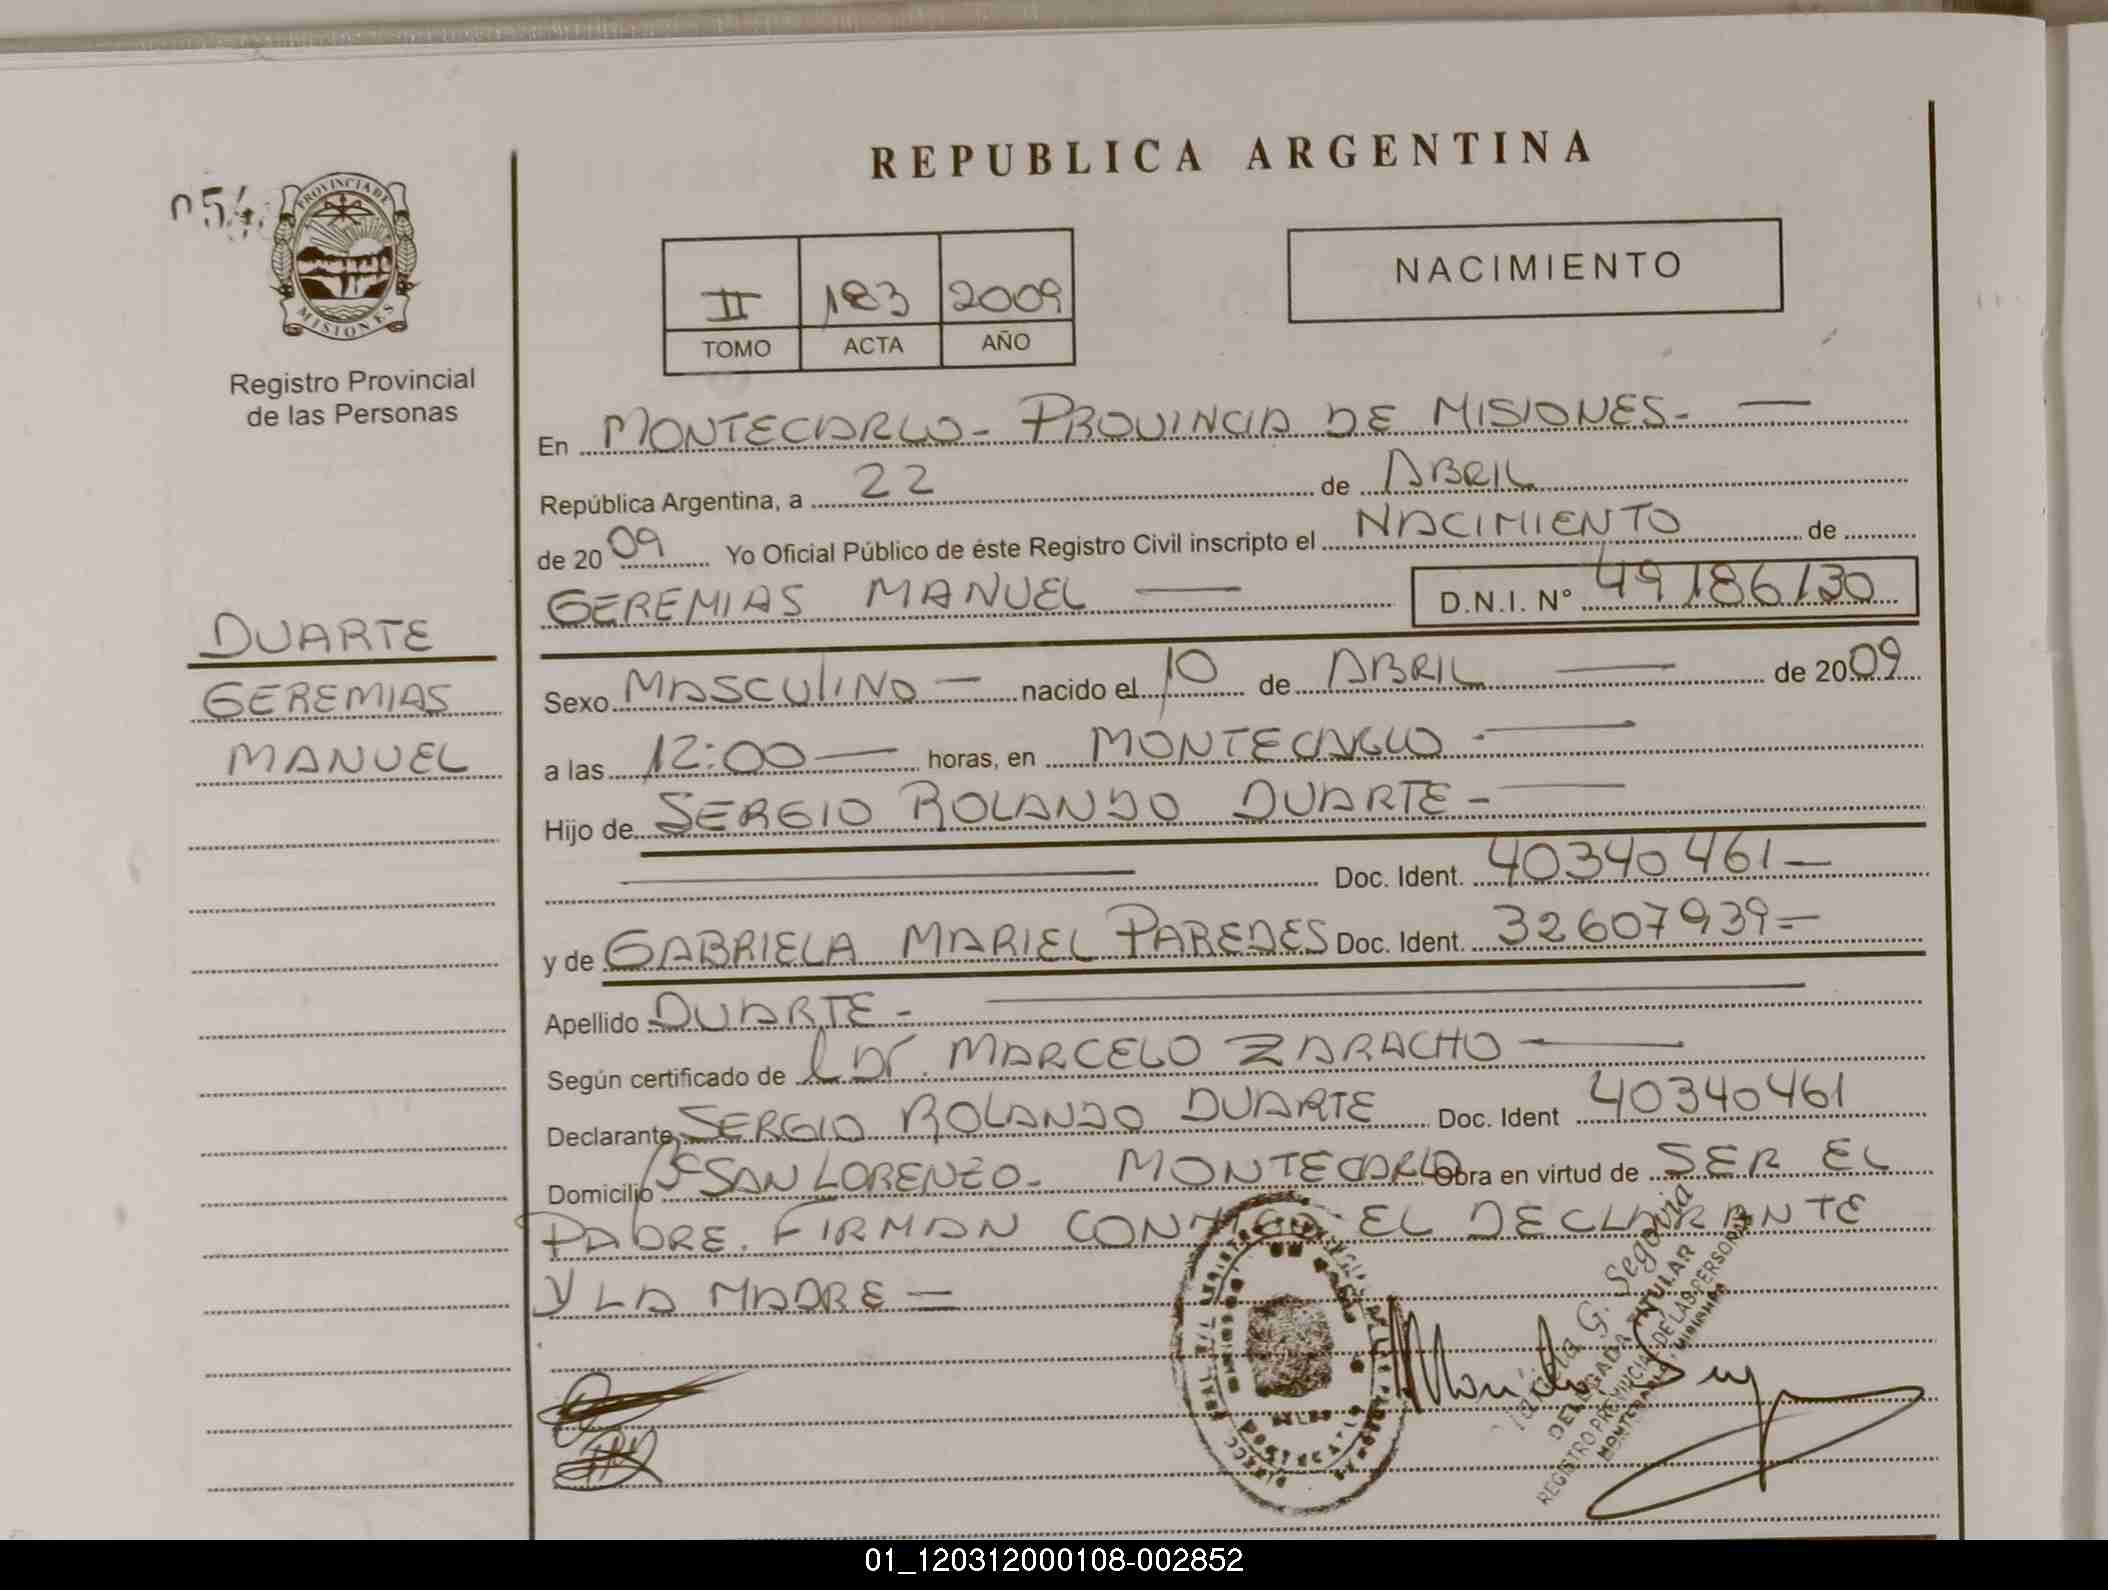 REPUBLICA ARGENTINA
054
PROVINCIA DE
MISIONES
Registro Provincial
de las Personas
II 183 2009
TOMO ACTA AÑO
NACIMIENTO
En MONTECARLO - PROVINCIA DE MISIONES - —
República Argentina, a 22 de ABRIL
de 2009 Yo Oficial Público de éste Registro Civil inscripto el NACIMIENTO de
GEREMIAS MANUEL — D.N.I. Nº 49186130
DUARTE
GEREMIAS
MANUEL
Sexo MASCULINO — nacido el 10 de ABRIL — de 2009
a las 12:00 — horas, en MONTECARLO - —
Hijo de SERGIO ROLANDO DUARTE - —
— Doc. Ident. 40340461 —
y de GABRIELA MARIEL PAREDES Doc. Ident. 32607939 =
Apellido DUARTE - —
Según certificado de Dr. MARCELO ZARACHO —
Declarante SERGIO ROLANDO DUARTE Doc. Ident 40340461
Domicilio Bº SAN LORENZO - MONTECARLO Obra en virtud de SER EL
PADRE. FIRMAN CONMIGO EL DECLARANTE
Y LA MADRE —
G. Segovia
DELEGADA TITULAR
REGISTRO PROVINCIAL DE LAS PERSONAS
01_120312000108-002852